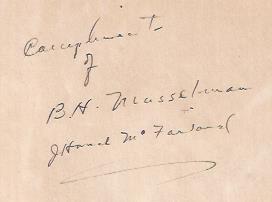 Compliments
of
B.H. Musselman
J Horace McFarland